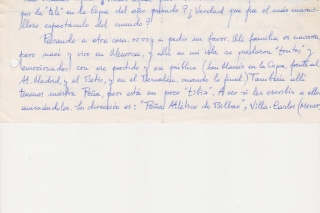 por la "tele" en la Copa del año pasado? ¿Verdad que fue el más maravi-
lloso espectáculo del mundo?
Pasando a otra cosa, os voy a pedir un favor. Mi familia es navarra
pero nací y vivo en Menorca, y allí en mi isla se quedaron "tontos" y
emocionados con ese partido y ese público (San Mamés en la Copa, frente al
At. Madrid, y al Betis, y en el Bernabeu, cuando la final) También allí
tenemos nuestra Peña, pero está un poco "tibia". A ver si les escribís a ellos
animándolos. La dirección es: "Peña Atlético de Bilbao", Villa-Carlos (Menor